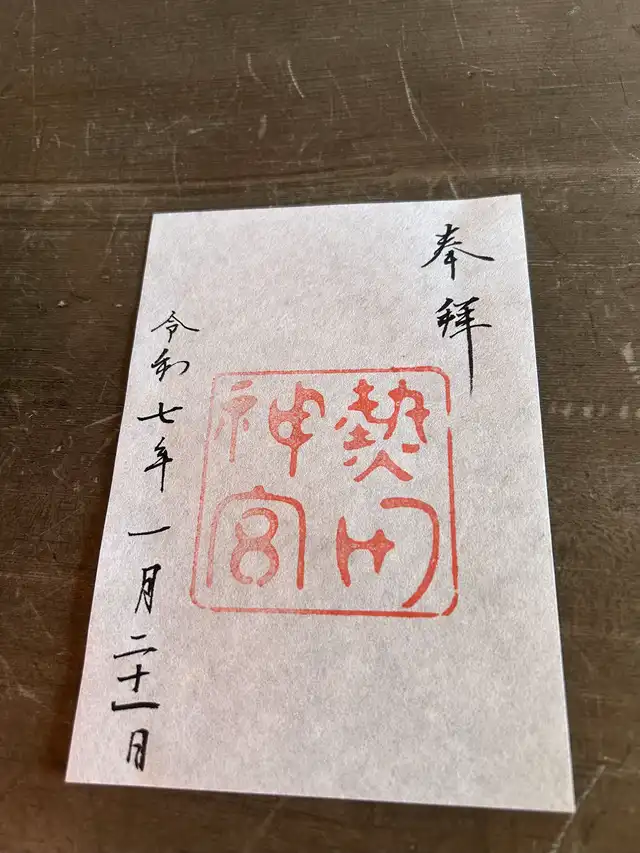 奉拝
熱田
神宮
令和七年一月二十一日